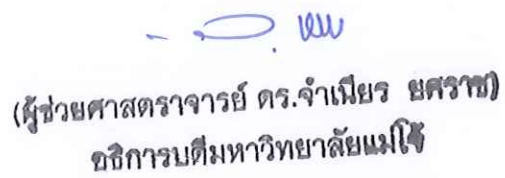 (ผู้ช่วยศาสตราจารย์ ดร.จำเนียร ยศราช)
อธิการบดีมหาวิทยาลัยแม่โจ้